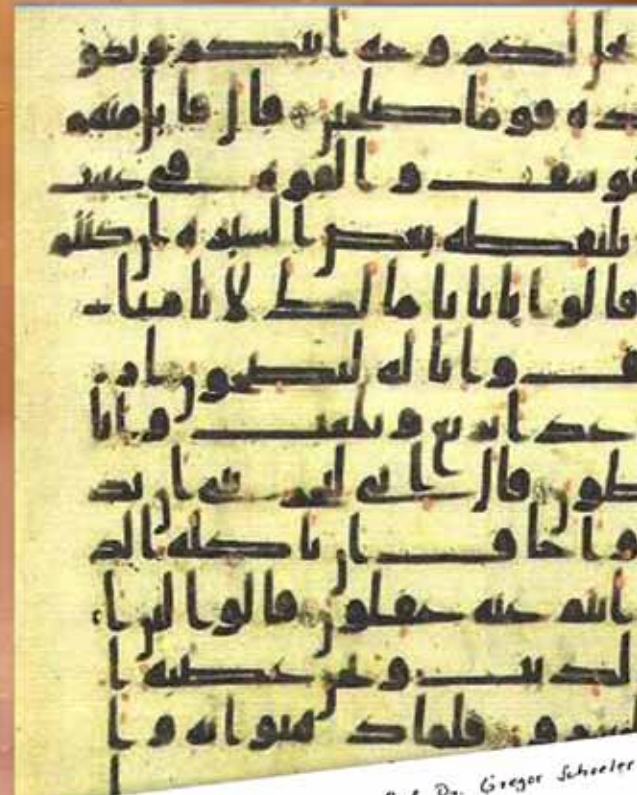 يخل لكم وجه ابيكم وتكو
ده قوما صلحين قال قايل منهم
يوسف والقوه في غيبت
يلتقطه بعض السيره ان كنتم
قالوا يابانا ما لك لا تامنا
ف وانا له لنصحون ار
غدا يرتع ويلعب وانا
ظون قال اني ليحزنني ان تذ
واخاف ان ياكله الذ
انتم عنه غفلون قالوا لين ا
الذيب ونحن عصبه ا
لخسرون فلما ذهبوا به وا
Dr. Gregor Schoeler